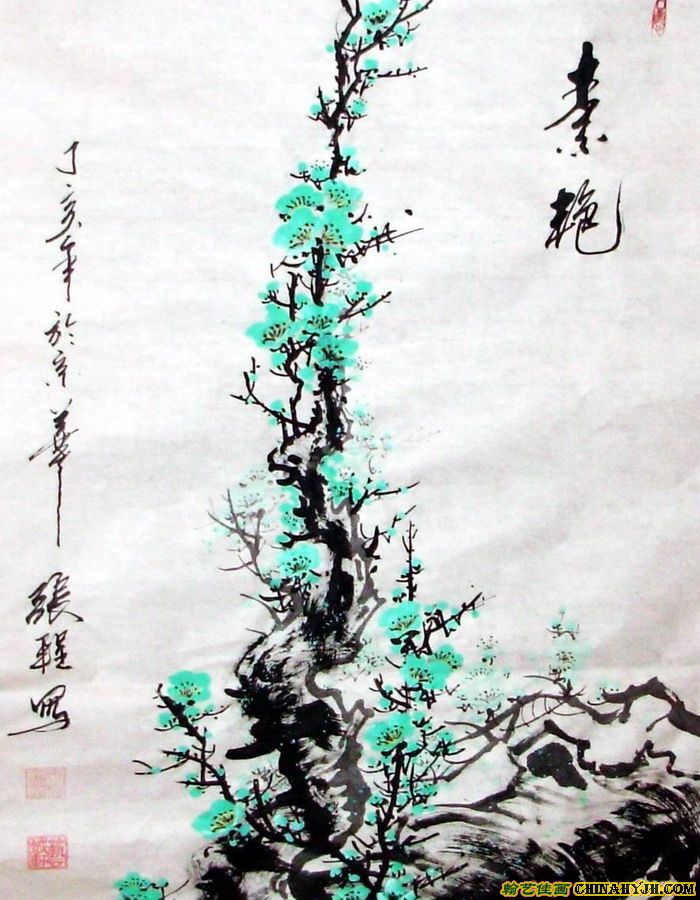 素艳
丁亥年於京華
張程寫
翰艺佳画 CHINAHYJH.COM